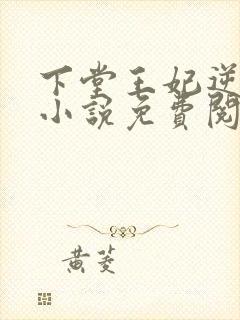 下堂王妃逆
小說免費閱
黄菱